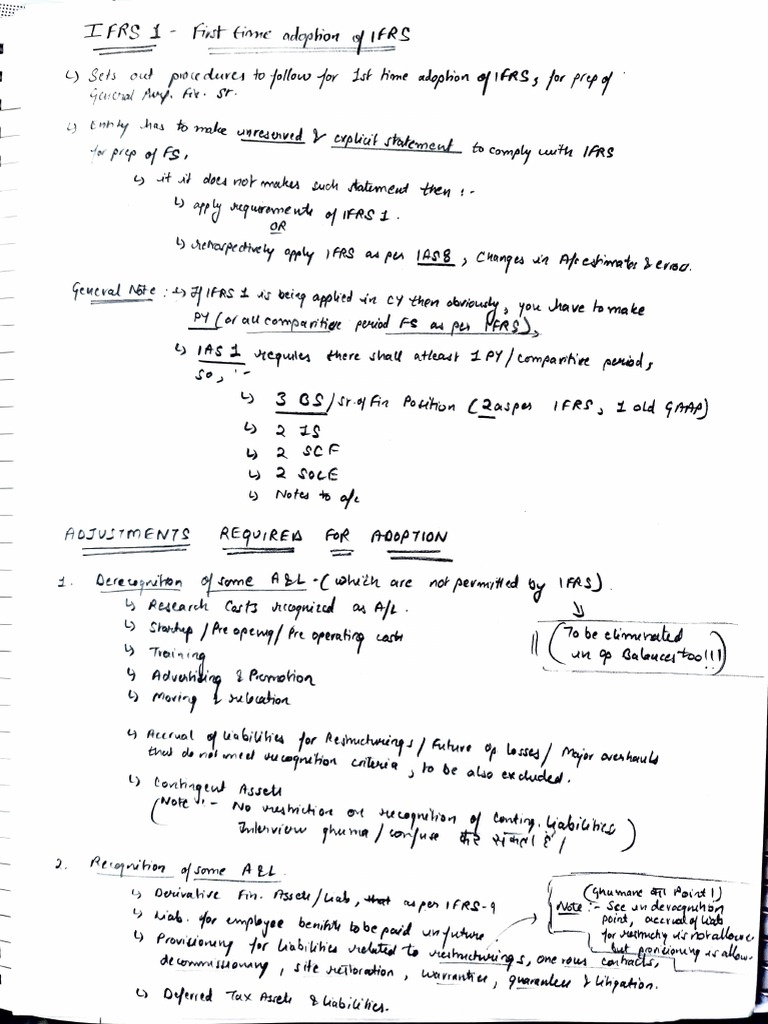 IFRS 1 - First time adoption of IFRS
↳ Sets out procedures to follow for 1st time adoption of IFRS, for prep of
General Purp. Fin. St.
↳ Entity has to make unreserved & explicit statement to comply with IFRS
for prep of FS,
↳ if it does not makes such statement then :-
↳ apply requirements of IFRS 1.
OR
↳ retrospectively apply IFRS as per IAS 8, Changes in A/c estimates & error.
General Note : ↳ If IFRS 1 is being applied in CY then obviously, you have to make
PY (or all comparitive period FS as per IFRS),
↳ IAS 1 requires there shall atleast 1 PY/comparitive period,
so, :-
↳ 3 BS/St. of Fin Position (2 as per IFRS, 1 old GAAP)
↳ 2 IS
↳ 2 SCF
↳ 2 SOCE
↳ Notes to a/c
ADJUSTMENTS REQUIRED FOR ADOPTION
1. Derecognition of some A&L - (which are not permitted by IFRS).
↳ Research Costs recognized as A/L.
↳ Startup / Pre opening / Pre operating costs
↳ Training
↳ Advertising & Promotion
↳ Moving & relocation
(To be eliminated
in op Balances too!!!)
↳ Accrual of liabilities for Restructurings / Future op losses / Major overhauls
that do not meet recognition criteria, to be also excluded.
↳ Contingent Assets
(Note :- No restriction on recognition of conting. liabilities
Interview ghuma / confuse कर सकता है / )
2. Recognition of some A&L.
↳ Derivative Fin. Assets/Liab, as per IFRS-9
↳ Liab. for employee benefits to be paid in future
↳ Provisioning for liabilities related to restructurings, onerous contracts,
decommissioning, site restoration, warranties, guarantees & litigation.
↳ Deferred Tax Assets & Liabilities.
(Ghumane का Point!)
Note :- See in derecognition
point, accrual of liab
for restructg is not allowe
but provisioning is allow-